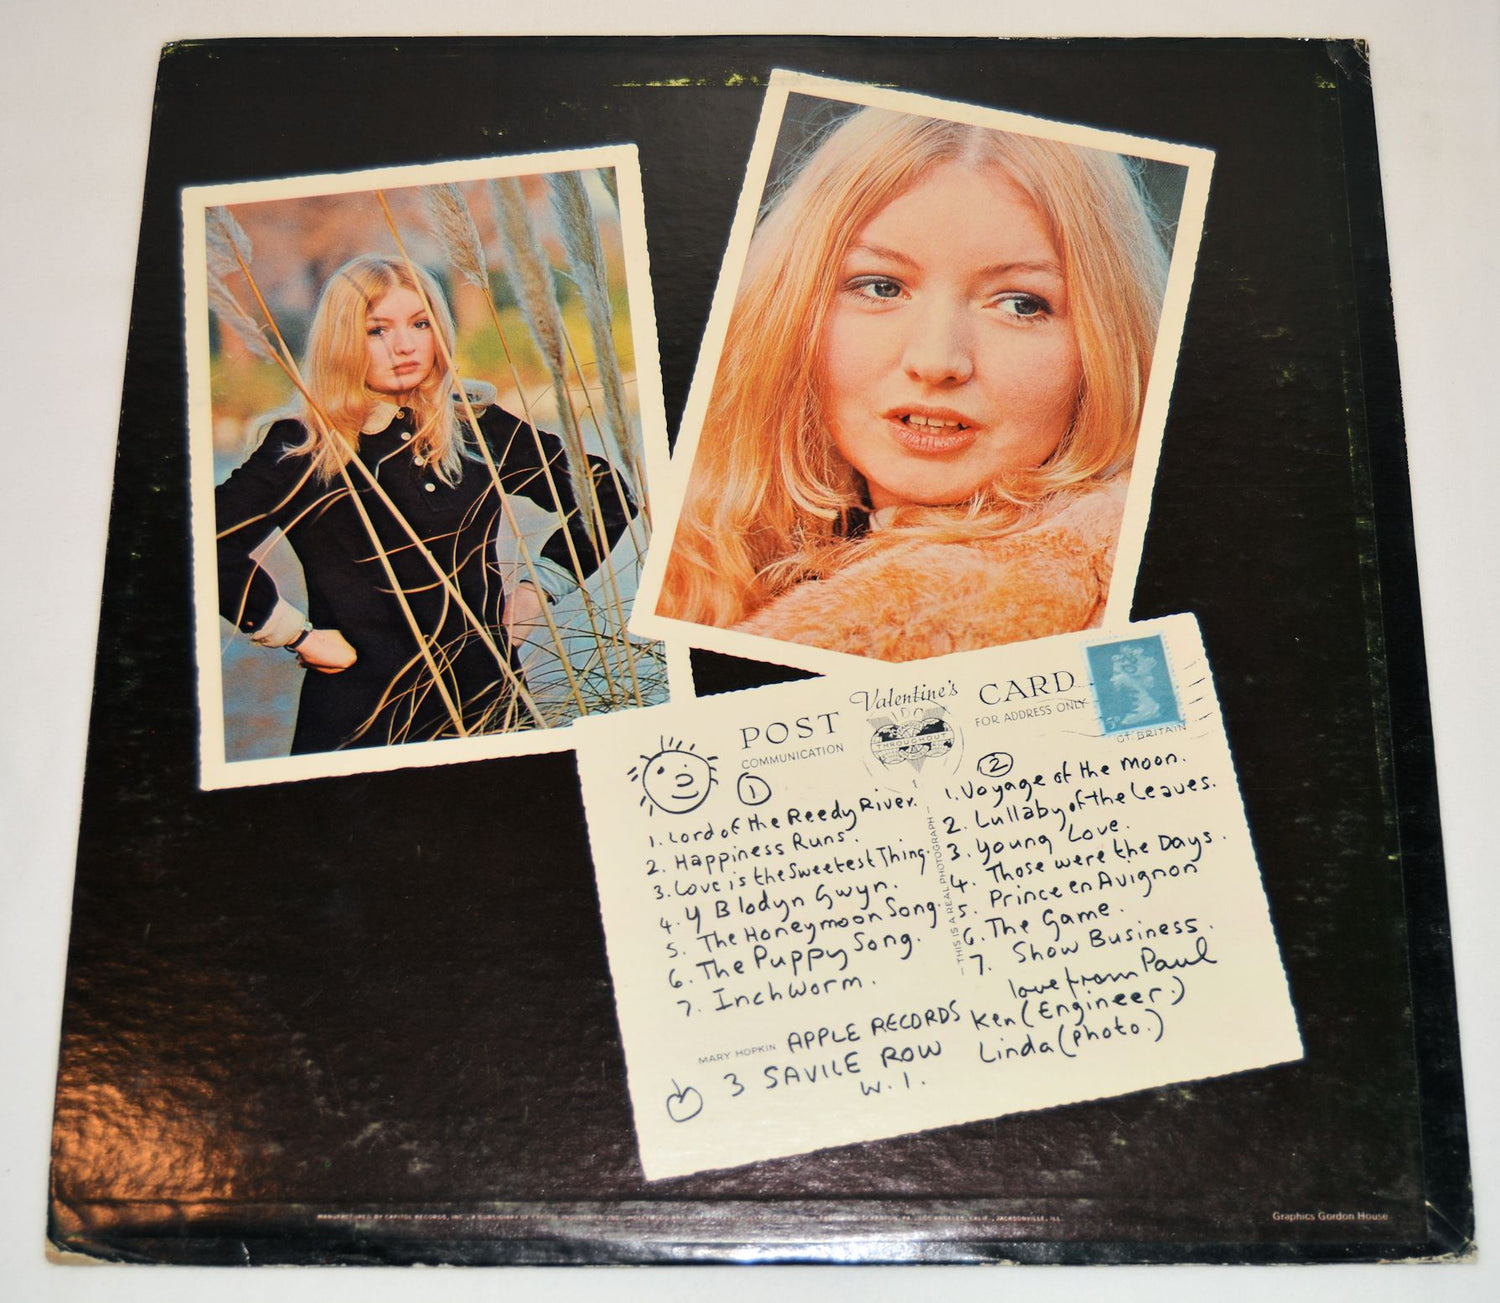 POST
Valentine's
CARD
COMMUNICATION
THROUGHOUT
FOR ADDRESS ONLY
GT BRITAIN
1
1. Lord of the Reedy River.
2. Happiness Runs.
3. Love is the Sweetest Thing.
4. Y Blodyn Gwyn.
5. The Honeymoon Song.
6. The Puppy Song.
7. Inchworm.
THIS IS A REAL PHOTOGRAPH
2
1. Voyage of the moon.
2. Lullaby of the Leaves.
3. Young Love.
4. Those were the Days.
5. Prince en Avignon
6. The Game.
7. Show Business.
love from Paul
Ken (Engineer.)
Linda (photo.)
MARY HOPKIN APPLE RECORDS
3 SAVILE ROW
W. 1.
MANUFACTURED BY CAPITOL RECORDS, INC., A SUBSIDIARY OF
JACKSONVILLE, ILL.
Graphics Gordon House